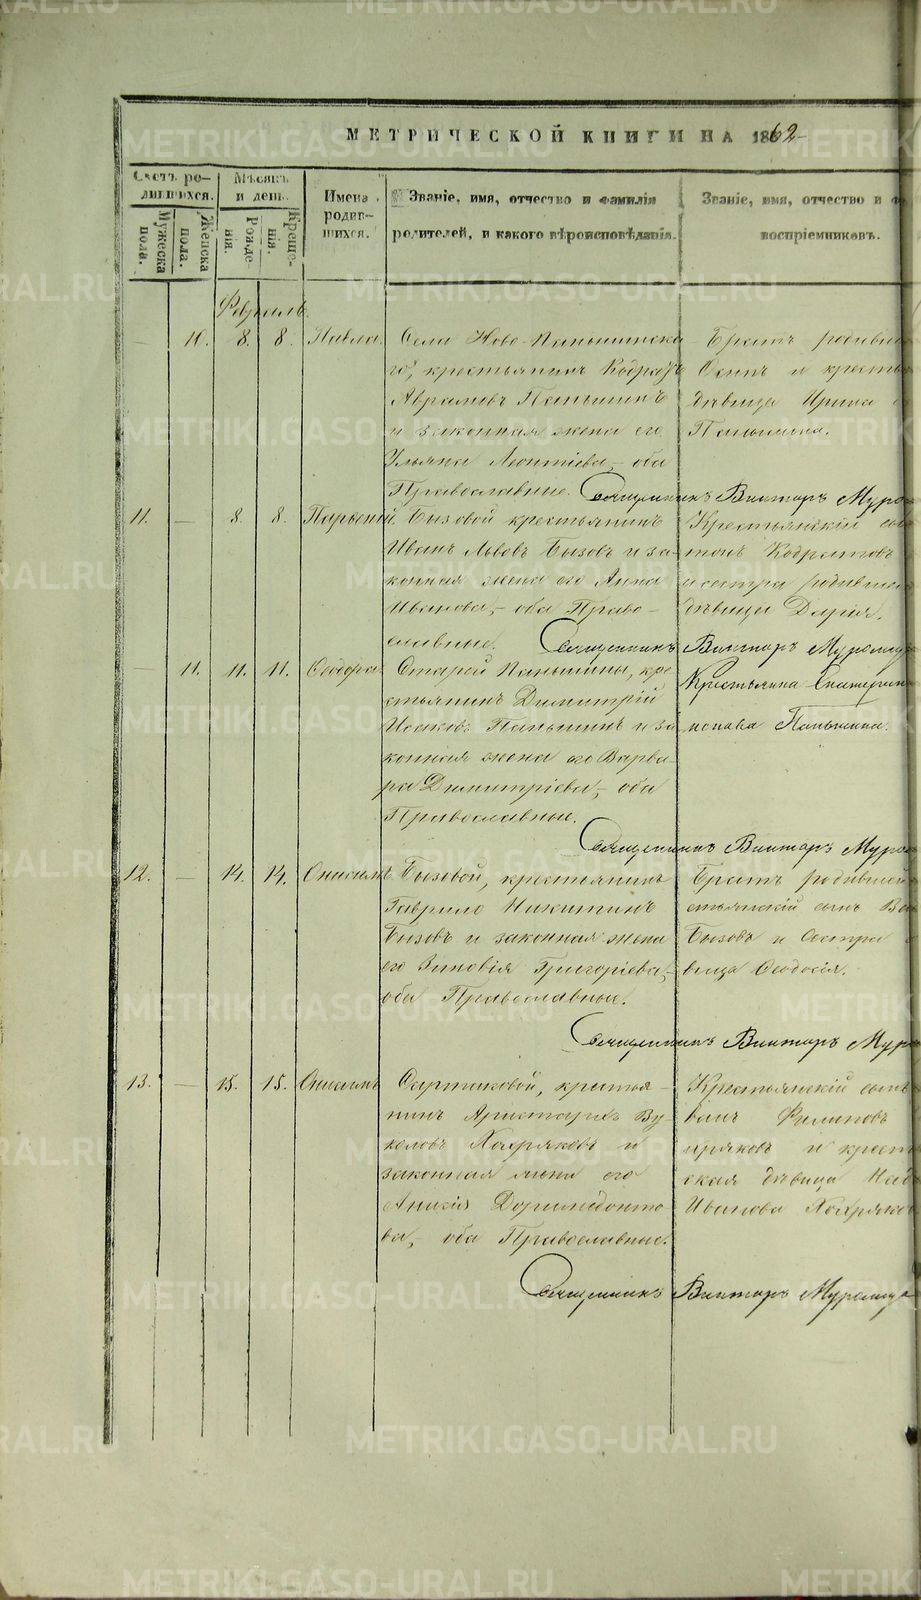 МЕТРИЧЕСКОЙ КНИГИ НА 1862
Счетъ родившихся.
Мужеска пола.
Женска пола.
Мѣсяцъ и день.
Рожденія.
Крещенія.
Имена родившихся.
Званіе, имя, отчество и фамилія
родителей, и какого вѣроисповѣданія.
Званіе, имя, отчество и
воспріемниковъ.
Февраль.
— 10. 8. 8. Павла.
Села Ново-Паньшинска
го, крестьянинъ Кодратъ
Аврамовъ Паньшинъ
и законная жена его
Ульяна Леонтіева, оба
Православные.
Братъ родивш
Осипъ и кресть
дѣвица Ирина
Паньшина.
Священникъ Викторъ Муро
11. — 8. 8. Парѳеній.
Бызовой крестьянинъ
Иванъ Львовъ Бызовъ и за-
конная жена его Анна
Иванова, оба Право-
славные.
Крестьянскій сы
тонъ Кодратовъ
и сестра родивша
дѣвица Дарія.
Священникъ Викторъ Муромц
— 11. 11. 11. Ѳеодора.
Старой Паньшины, кре
стьянинъ Димитрій
Исаковъ Паньшинъ и за
конная жена его Варва-
ра Димитріева, оба
Православные.
Крестьянка Екатерин
Паньшина.
Священникъ Викторъ Муро
12. — 14. 14. Онисимъ
Бызовой, крестьянинъ
Гаврило Никитинъ
Бызовъ и законная жена
его Зиновія Григоріева,
оба Православные.
Братъ родившей
стьянскій сынъ Ва
Бызовъ и Сестра
вица Ѳеодосія.
Священникъ Викторъ Муро
13. — 15. 15. Онисимъ
крестья-
нинъ Аристархъ Ву-
коловъ Хохряковъ и
законная жена его
Доримедонто
ва, оба Православные.
Крестьянскій сынъ
ванъ Филиповъ
хряковъ и крест
ская дѣвица Над
Иванова Хохряков
Священникъ Викторъ Муромце
METRIKI.GASO-URAL.RU